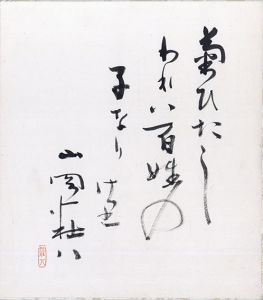 菊ひたし
われハ百姓の
子なり
山岡荘八